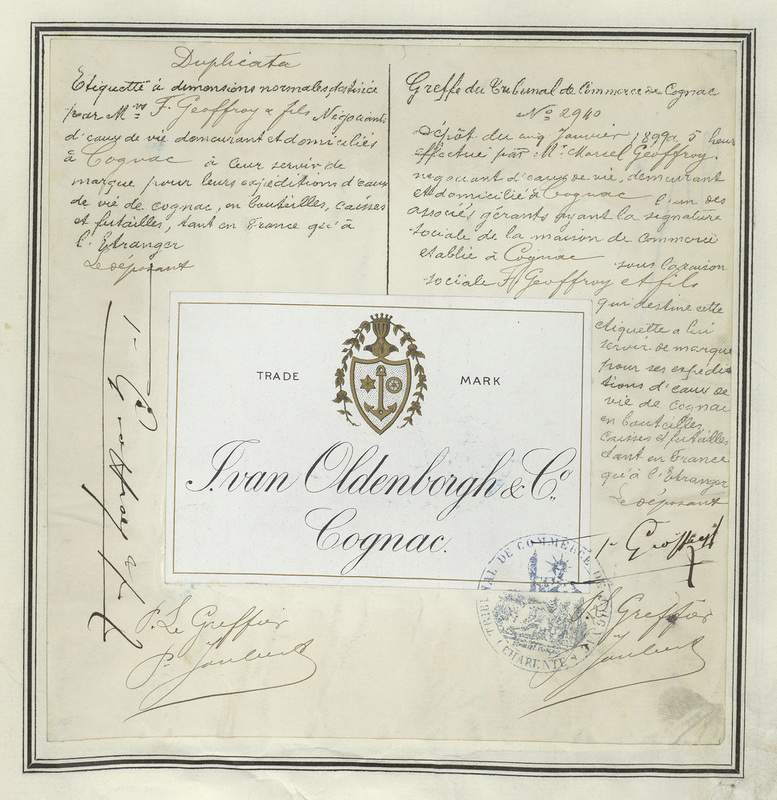 Duplicata
Etiquette à dimensions normales destinée
pour M.rs F. Geoffroy & fils Négociants
d'eaux de vie demeurant et domiciliés
à Cognac à leur servir de
marque pour leurs expéditions d'eaux
de vie de cognac, en bouteilles, caisses
et futailles, tant en France qu'à
l'Etranger
Le déposant
Greffe du Tribunal de Commerce de Cognac
No 2940
Dépôt du cinq Janvier 1899 à 5 heur
effectué par M. Marcel Geoffroy,
négociant d'eaux de vie, demeurant
et domicilié à Cognac l'un des
associés gérants ayant la signature
sociale de la maison de commerce
établie à Cognac sous la raison
sociale F. Geoffroy et fils
qui destine cette
etiquette a lui
servir de marque
pour ses expédi
tions d'eaux de
vie de cognac
en bouteilles,
caisses et futailles
tant en France
qu'à l'Etranger
Le déposant
TRADE MARK
J. van Oldenborgh & Co.
Cognac.
TRIBUNAL DE COMMERCE DE COGNAC
CHARENTE
P. Le Greffier
P. Joubert
P. Le Greffier
Joubert